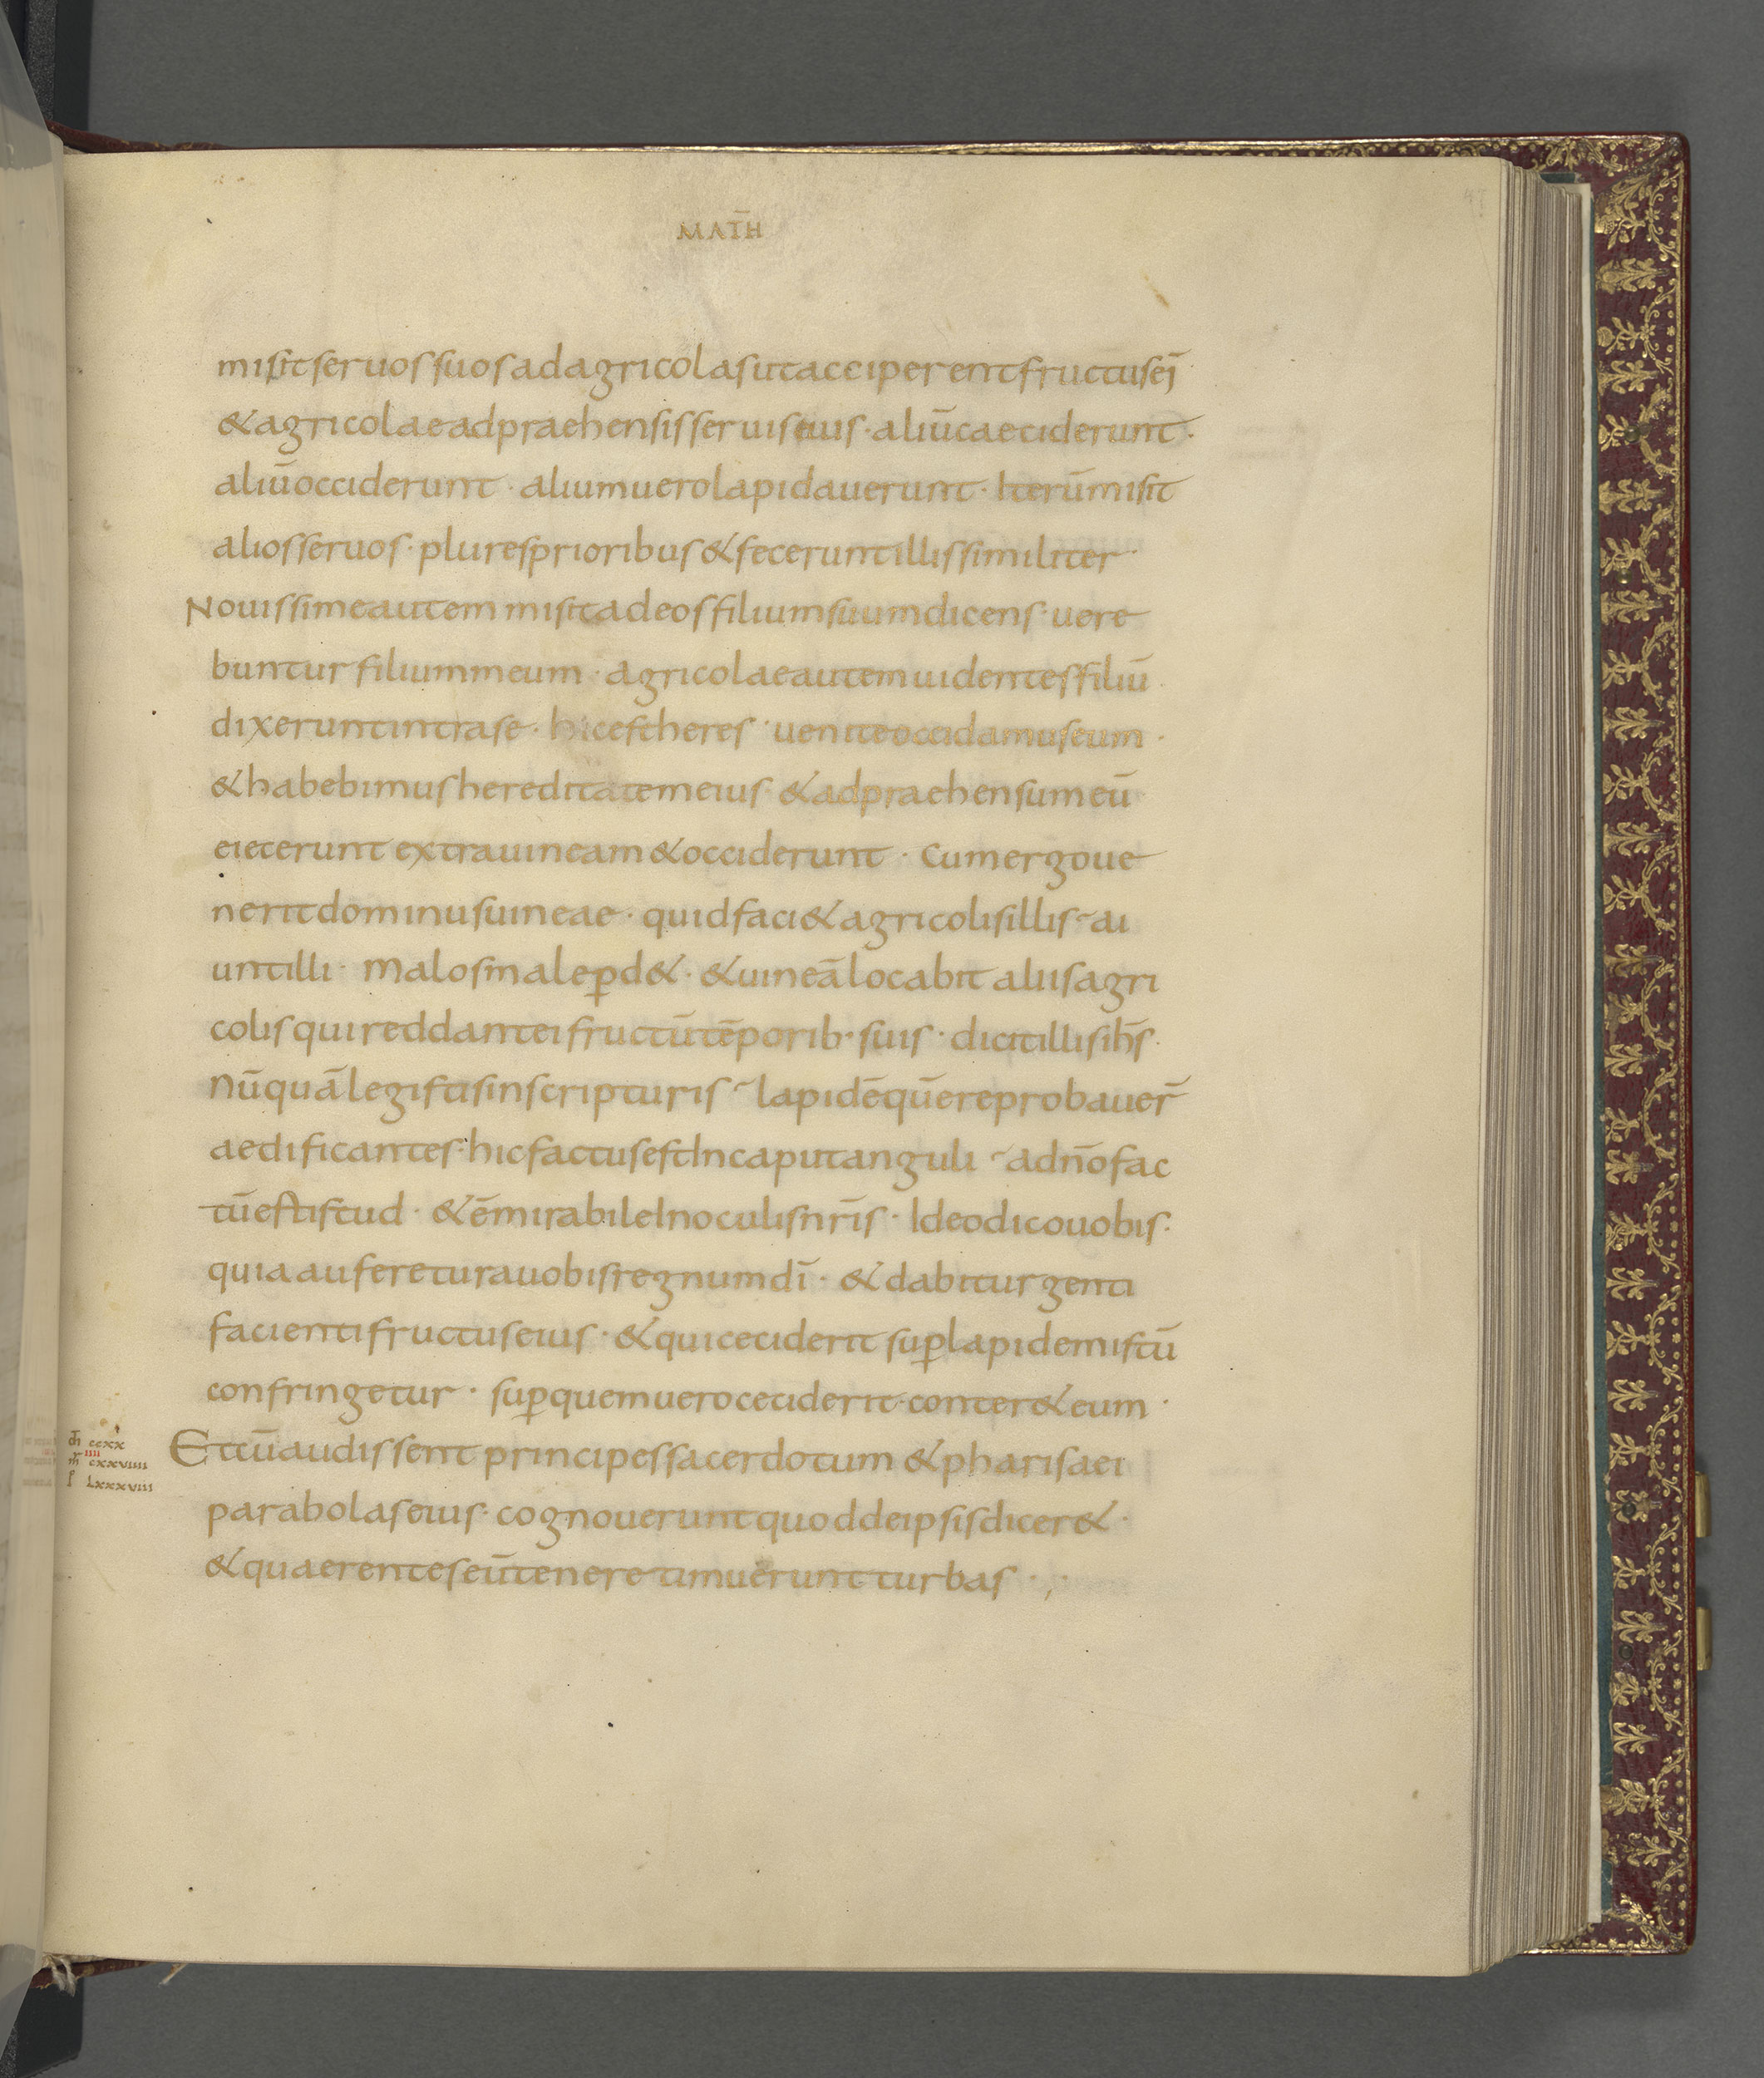 MAT̄H
misit seruos suos ad agricolas ut acciperent fructus eī
& agricolae adpraehensis seruis eius · aliū caeciderunt ·
aliū occiderunt · alium uero lapidauerunt · Iterū misit
alios seruos · plures prioribus & fecerunt illis similiter ·
Nouissime autem misit ad eos filium suum dicens · uere
buntur filium meum · agricolae autem uidentes filiū
dixerunt intra se · hic est heres · uenite occidamus eum ·
& habebimus hereditatem eius · & adpraehensum eū
eiecerunt extra uineam & occiderunt · Cum ergo ue
nerit dominus uineae · quid faci& agricolis illis ai
unt illi · malos male ꝑd& · & uineā locabit aliis agri
colis qui reddant ei fructū tēporib· suis · dicit illis ih̄s ·
Nū quā legistis in scripturis lapidē quē reprobauer̄
aedificantes · hic factus est In caput anguli a dn̄o fac
tū est istud · & ē mirabile In oculis nr̄is · Ideo dico uobis ·
quia auferetur a uobis regnum dī · & dabitur genti
facienti fructus eius · & qui ceciderit suꝑ lapidem istū
confringetur · suꝑ quem uero ceciderit conter& eum ·
Et cū audissent principes sacerdotum & pharisaei
parabolas eius · cognouerunt quod de ipsis dicer& ·
& quaerentes eū tenere timuerunt turbas ·
ccxx
IIII
cxxviiii
Lxxxviii